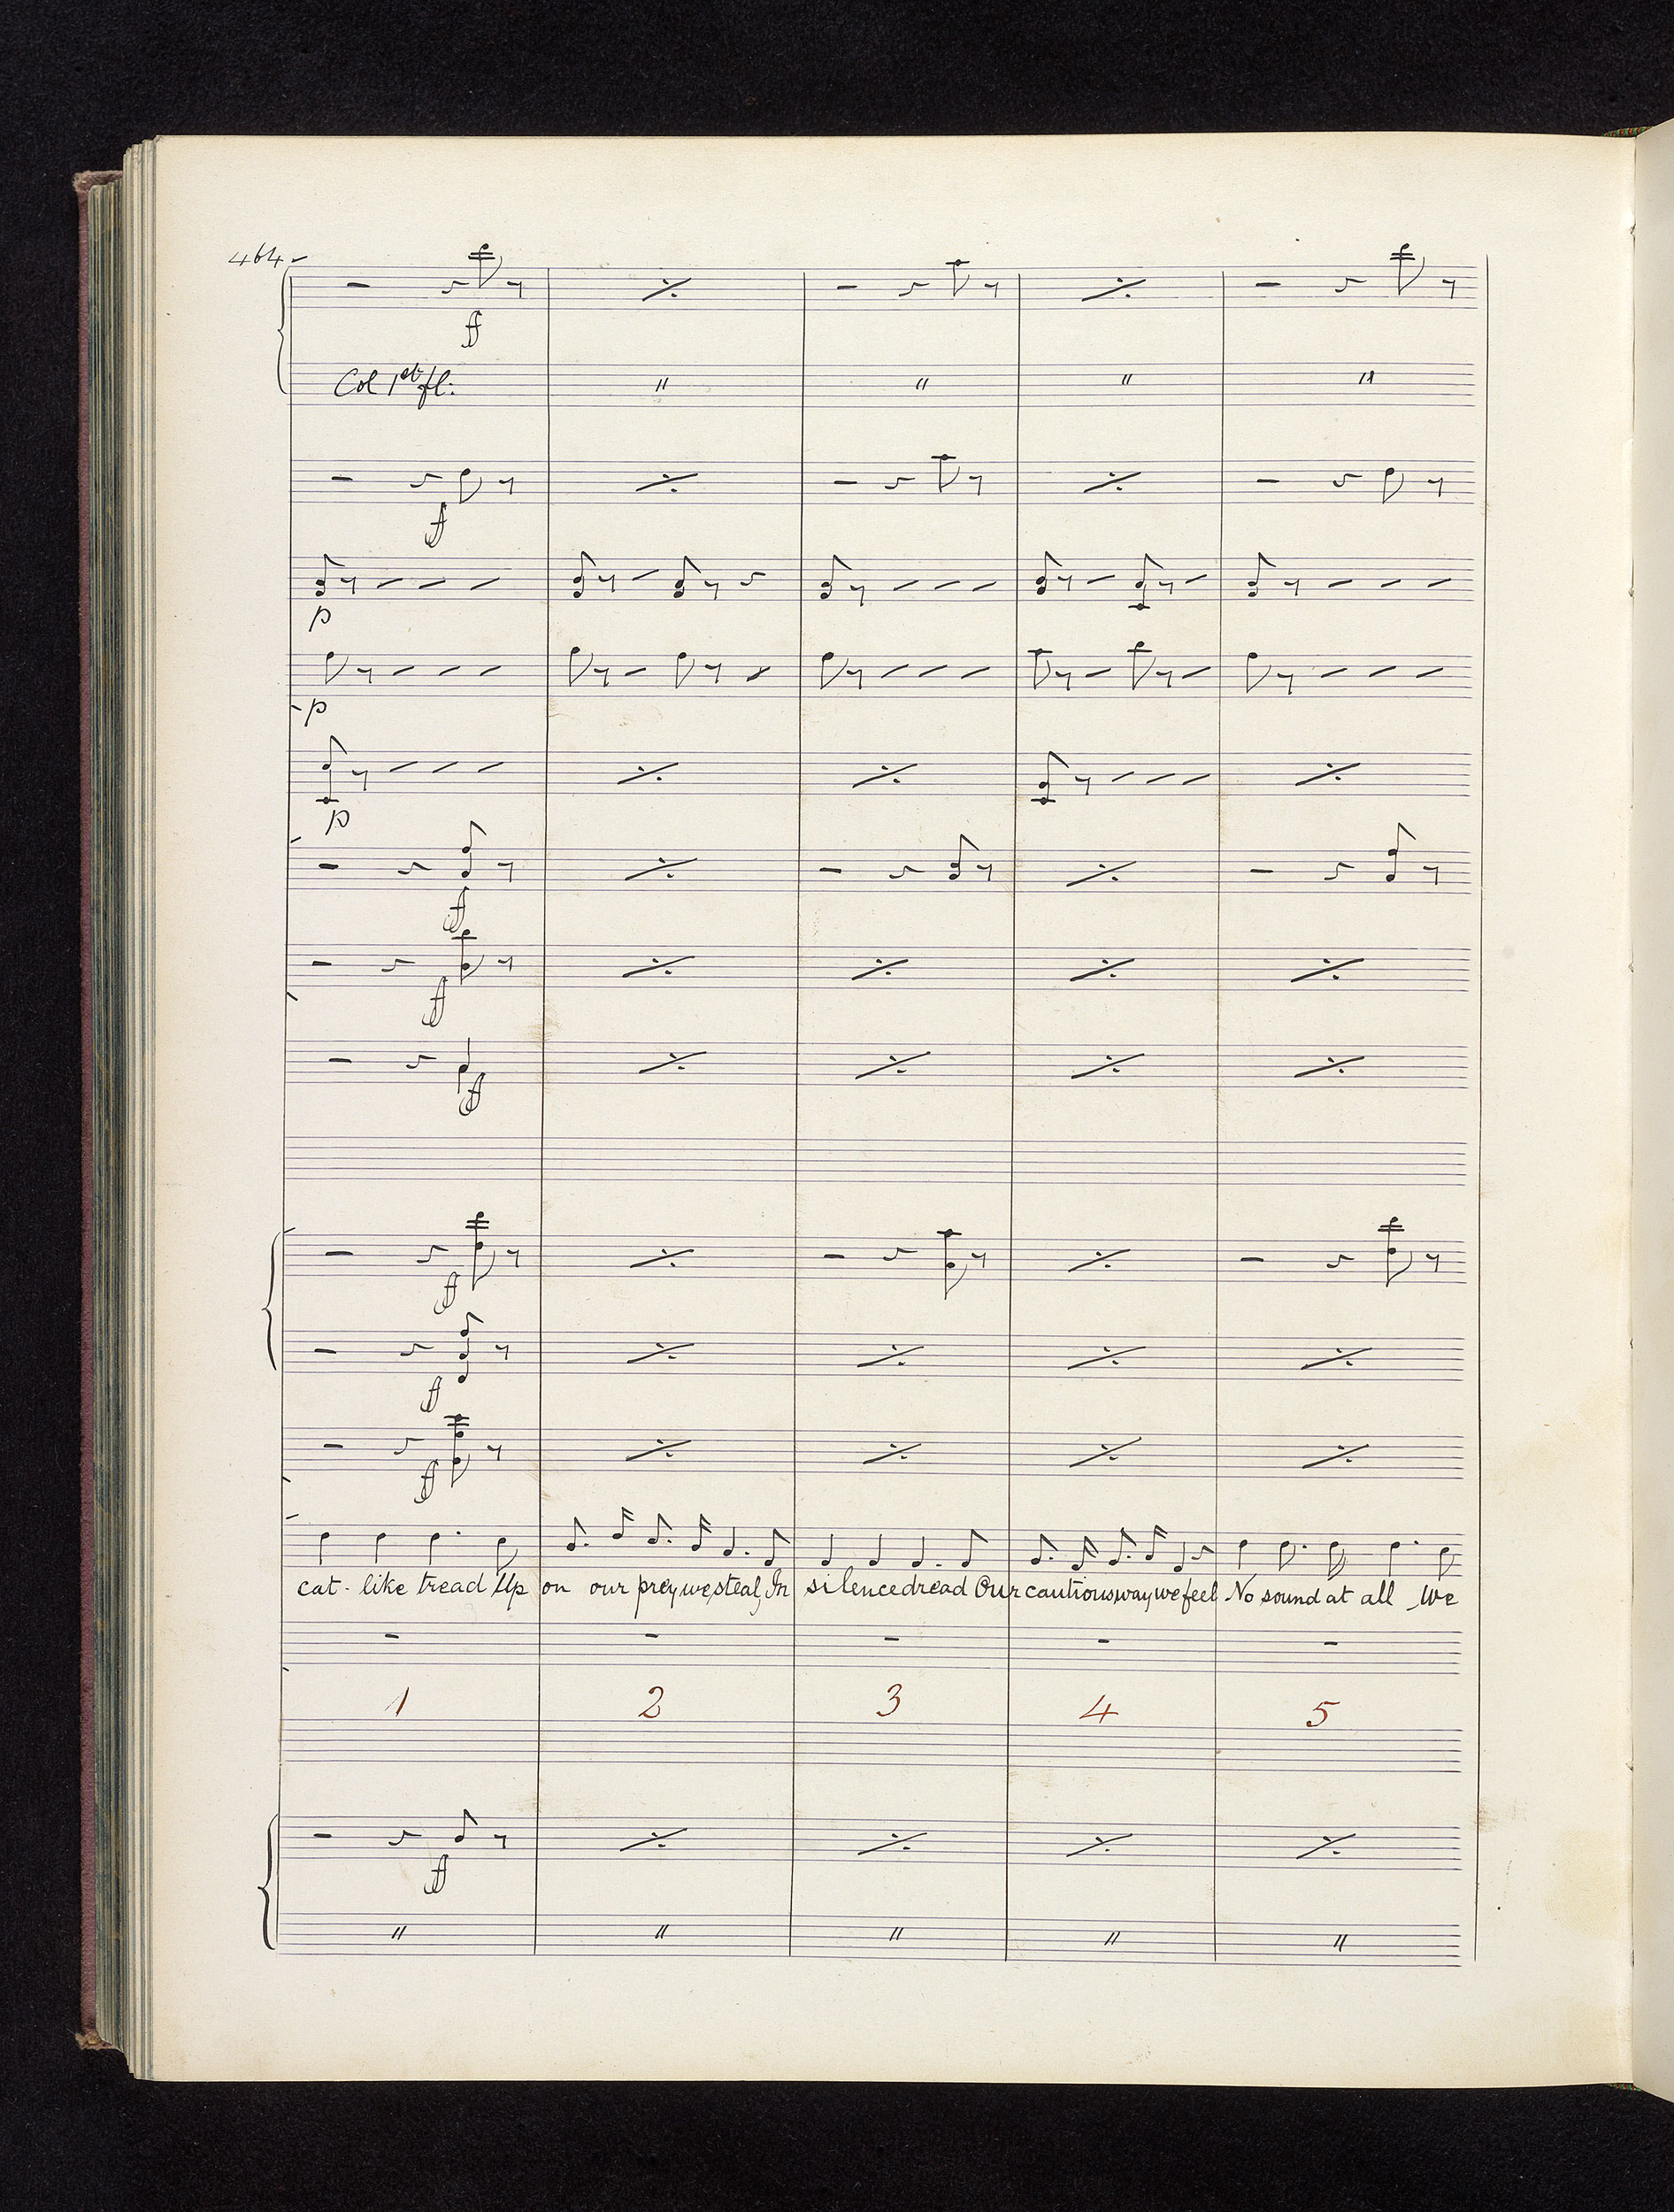 464
ff
Col 1st fl: " " " "
ff
p
p
p
ff
ff
ff
ff
ff
ff
cat - like tread Up on our prey we steal, In silence dread Our cautious way we feel No sound at all We
1 2 3 4 5
ff
" " " " "